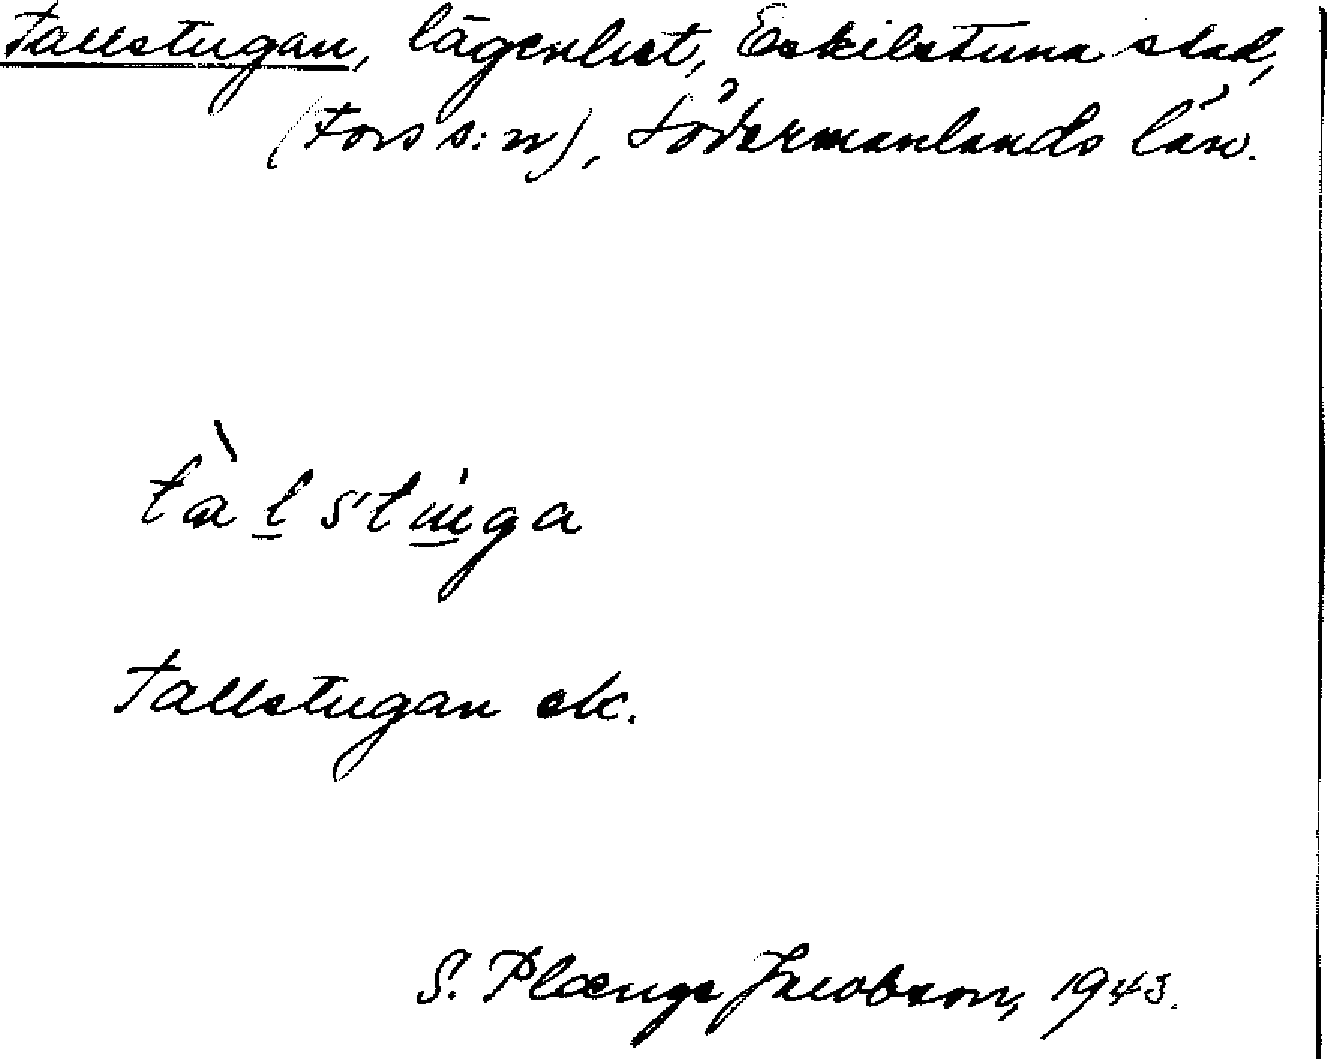 Tallstugan, lägenhet, Eskilstuna stad,
(Fors s:n), Södermanlands län.
tàlstuga
Tallstugan ek.
S. Plænge Jacobson, 1943.